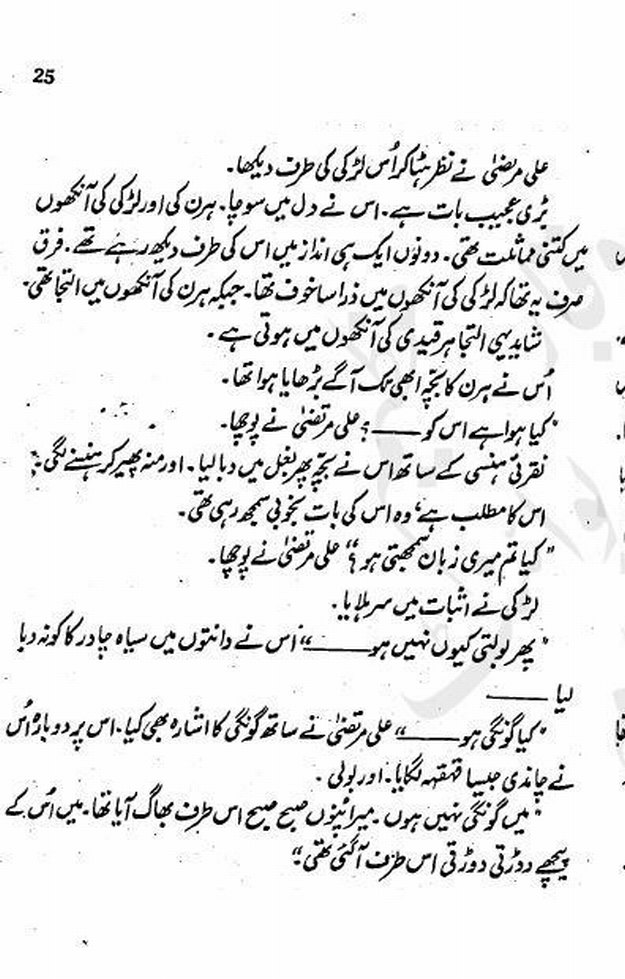 25
علی مرتضیٰ نے نظر ہٹا کر اُس لڑکی کی طرف دیکھا۔
بڑی عجیب بات ہے۔ اس نے دل میں سوچا۔ ہرن کی اور لڑکی کی آنکھوں
میں کتنی مماثلت تھی۔ دونوں ایک ہی انداز میں اس کی طرف دیکھ رہے تھے۔ فرق
صرف یہ تھا کہ لڑکی کی آنکھوں میں ذرا سا خوف تھا۔ جبکہ ہرن کی آنکھوں میں التجا تھی۔
شاید یہی التجا ہر قیدی کی آنکھوں میں ہوتی ہے۔
اُس نے ہرن کا بچّہ ابھی تک آگے بڑھایا ہوا تھا۔
"کیا ہوا ہے اس کو ——؟ علی مرتضیٰ نے پوچھا۔
نقرئی ہنسی کے ساتھ اس نے بچّہ پھر بغل میں دبا لیا۔ اور منہ پھیر کر ہنسنے لگی۔
اس کا مطلب ہے، وہ اس کی بات بخوبی سمجھ رہی تھی۔
"کیا تم میری زبان سمجھتی ہو؟" علی مرتضیٰ نے پوچھا۔
لڑکی نے اثبات میں سر ہلایا۔
"پھر بولتی کیوں نہیں ہو ——" اس نے دانتوں میں سیاہ چادر کا کونہ دبا
لیا ——
"کیا گونگی ہو ——" علی مرتضیٰ نے ساتھ گونگی کا اشارہ بھی کیا۔ اس پر دوبارہ اُس
نے چاندی جیسا قہقہہ لگایا۔ اور بولی۔
"میں گونگی نہیں ہوں۔ میرا پنوں صبح صبح اس طرف بھاگ آیا تھا۔ میں اُس کے
پیچھے دوڑتی دوڑتی اس طرف آ گئی تھی۔"